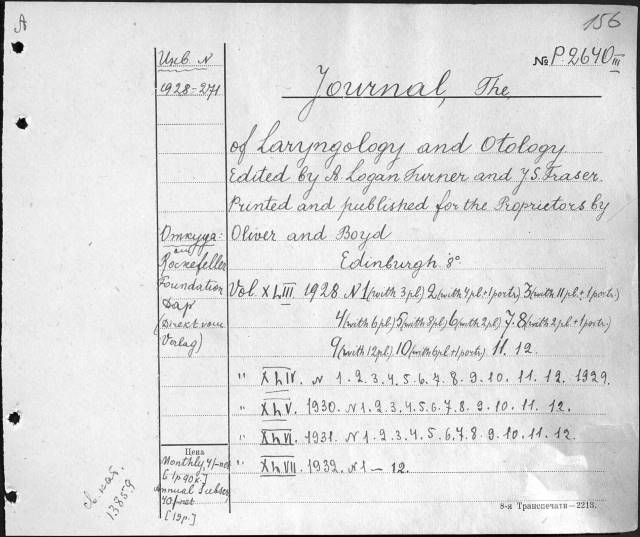 A
156
Инв. N
1928-271
№ P.2640 III
Journal, The
of Laryngology and Otology
Edited by A. Logan Turner and J.S. Fraser.
Printed and published for the Proprietors by
Oliver and Boyd
Edinburgh 8°
Откуда:
Rockefeller
Foundation
Дар
(Direkt vom
Verlag)
Vol. XLIII. 1928. N 1 (with 3 pl.) 2 (with 4 pl. + 1 portr.) 3 (with 11 pl. + 1 portr.)
4 (with 6 pl.) 5 (with 8 pl.) 6 (with 2 pl.) 7. 8 (with 2 pl. + 1 portr.)
9 (with 12 pl.) 10 (with 6 pl. + 1 portr.) 11. 12.
" XLIV. N 1. 2. 3. 4. 5. 6. 7. 8. 9. 10. 11. 12. 1929.
" XLV. 1930. N 1. 2. 3. 4. 5. 6. 7. 8. 9. 10. 11. 12.
" XLVI. 1931. N 1. 2. 3. 4. 5. 6. 7. 8. 9. 10. 11. 12.
" XLVII. 1932. N 1 — 12.
Цена
Monthly, 4/- net
[1 р 90 к.]
Annual Subscr.
40/- net
[19 р.]
13859
8-я Транспечати—2213.